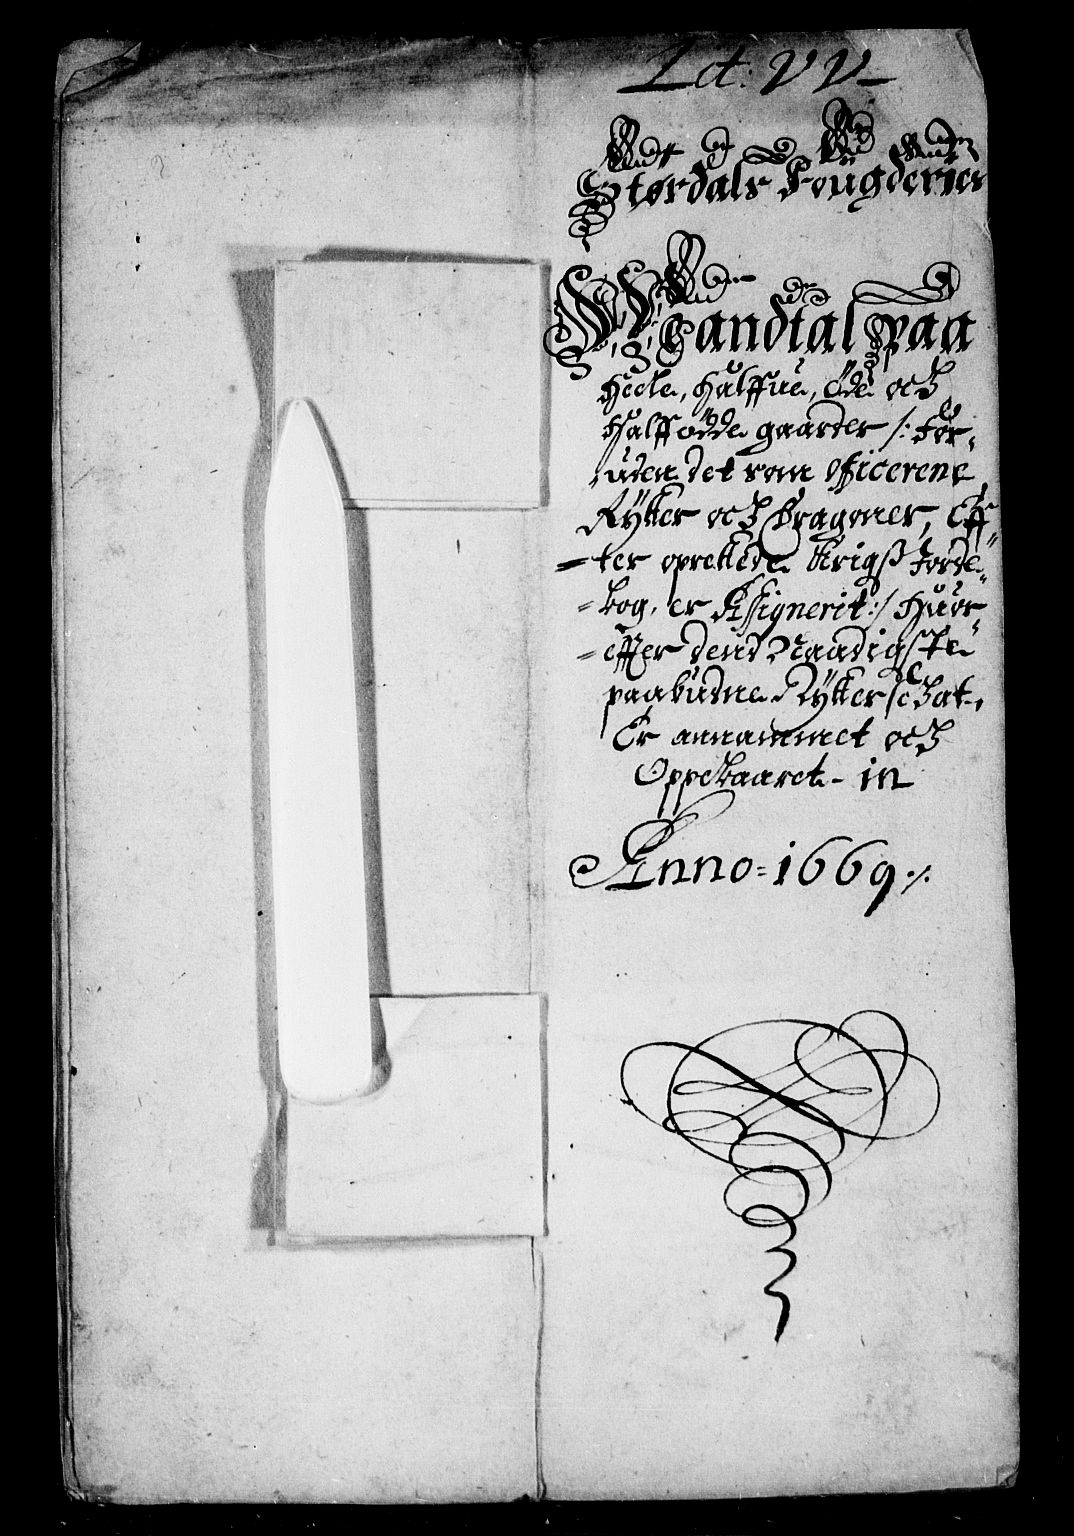 Lit: VV
Størdals Fougderies
Mandtal paa
Heele, halffue, Øde och
halff ødde gaarder /: For,
uden det som officerene
Rÿtter och Dragoner, Eff-
=ter oprettede Krigs Jorde-
=bog, er Assignerit :/ Huor
=effter dend Naadigste
paabudne Rÿtter schat,
Er annammet och
Oppebaaret - in
Anno = 1669 ./.